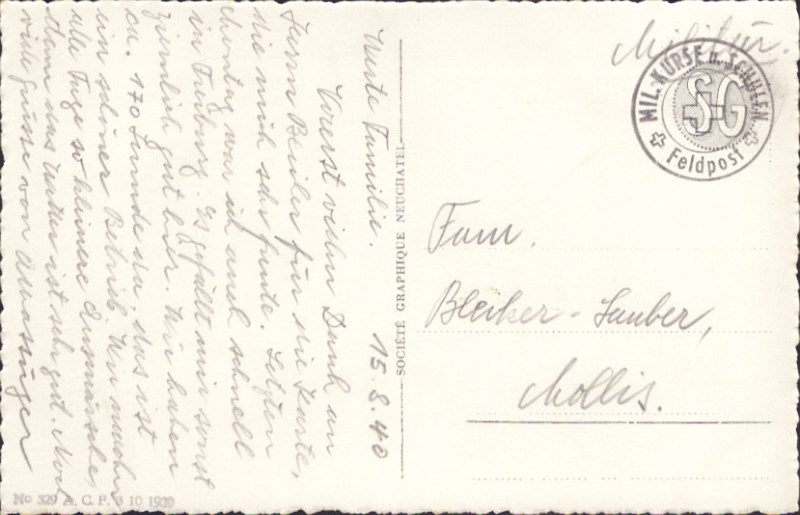 Militär.
MIL. KURSE u. SCHULEN
SG
Feldpost
Fam.
Bleiker-Tauber,
Mollis.
SOCIÉTÉ GRAPHIQUE NEUCHATEL
No 329 A. C. F. 3 10 1939
15.8.40
Werte Familie.
Vorerst vielen Dank an
Herrn Bleiker für die Karte,
die mich sehr freute. Letzten
Montag war ich auch schnell
in Freiburg. Es gefällt mir sonst
ziemlich gut hier. Wir haben
ca. 170 Hunde da, das ist
ein schöner Betrieb. Wir machen
alle Tage so kleinere Ausmärsche,
denn das Wetter ist sehr gut. Noch
viele Grüsse von